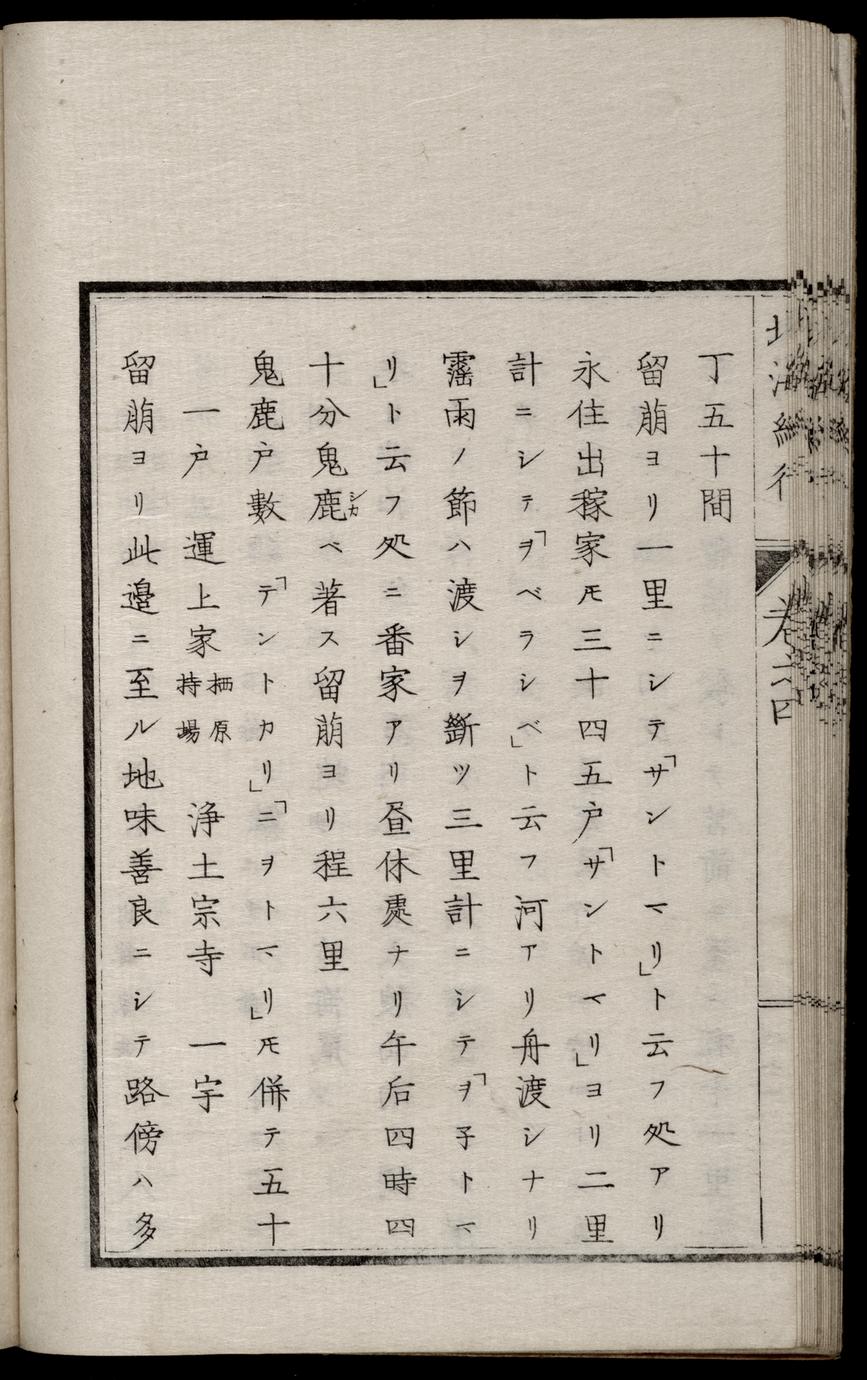 丁五十間
留萠ヨリ一里ニシテ「サントマリ」ト云フ処アリ
永住出稼家𪜈三十四五戸「サントマリ」ヨリ二里
計ニシテ「ヲベラシベ」ト云フ河アリ舟渡シナリ
霪雨ノ節ハ渡シヲ斷ツ三里計ニシテ「ヲ子トマ
リ」ト云フ処ニ番家アリ昼休處ナリ午后四時四
十分鬼鹿シカヘ著ス留萠ヨリ程六里
鬼鹿戸數「テントカリ」「ニヲトマリ」𪜈併テ五十
一戸　運上家栖原持場　浄土宗寺　一宇
留萠ヨリ此邉ニ至ル地味善良ニシテ路傍ハ多